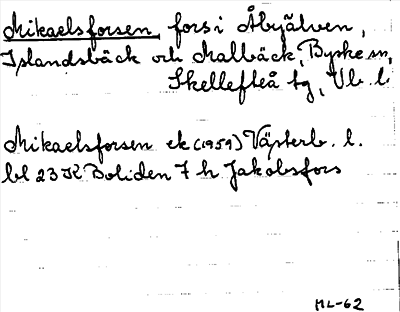 Mikaelsforsen, fors i Åbyälven,
Islandsbäck och Malbäck, Byske sn,
Skellefteå tg, Vb. l.
Mikaelsforsen ek (1959) Västerb. l.
bl 23 K Boliden 7 h Jakobsfors
ML-62